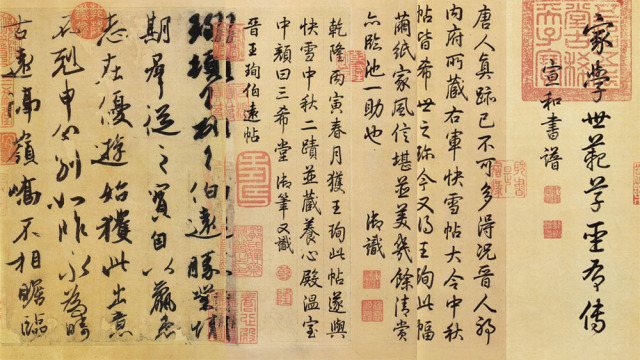 家學世範草聖有傳
宣和書譜
唐人真跡已不可多得況晉人耶
內府所藏右軍快雪帖大令中秋
帖皆希世之珍今又得王珣此幅
繭紙家風信堪並美幾餘清賞
亦臨池一助也 御識
乾隆丙寅春月獲王珣此帖遂與
快雪中秋二蹟並藏養心殿溫室
中顏曰三希堂御筆又識
晉王珣伯遠帖
珣頓首頓首伯遠勝業情
期群從之寶自以羸患
志在優遊始獲此出意
不剋申分別如昨永為疇
古遠隔嶺嶠不相瞻臨